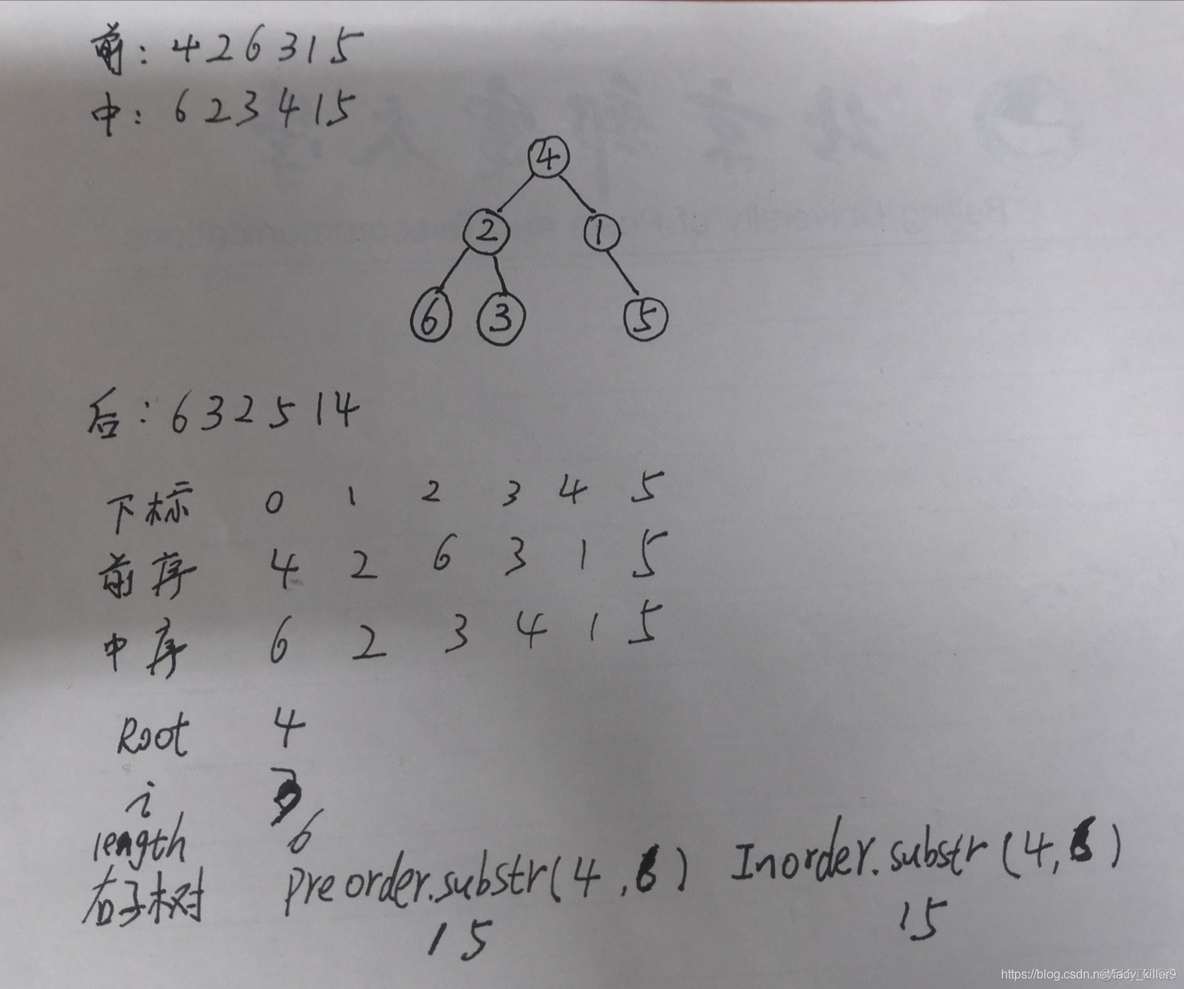 前: 426315
中: 623415
4
2 1
6 3 5
后: 632514
下标 0 1 2 3 4 5
前序 4 2 6 3 1 5
中序 6 2 3 4 1 5
Root 4
i 3
length 6
右子树 Preorder.substr(4,6) Inorder.substr(4,6)
15 15
https://blog.csdn.net/lady_killer9